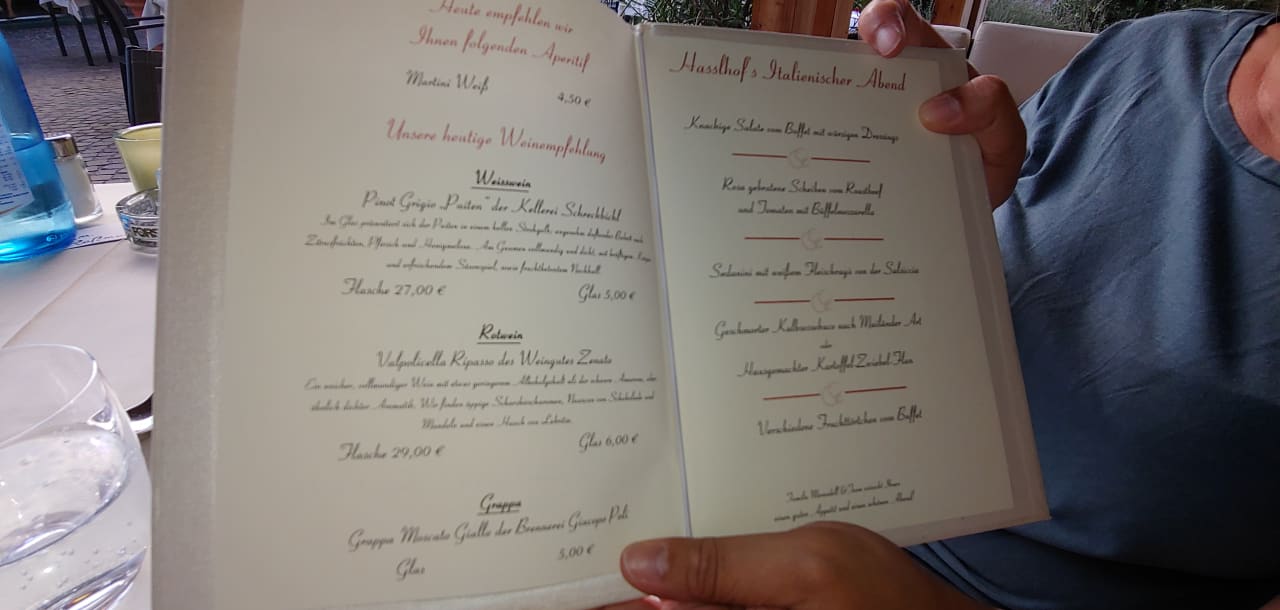 Heute empfehlen wir
Ihnen folgenden Aperitif
Martini Weiß
4,50 €
Unsere heutige Weinempfehlung
Weisswein
Pinot Grigio „Puiten“ der Kellerei Schreckbichl
Im Glas präsentiert sich der Puiten in einem hellen Strohgelb, angenehm duftendes Bukett nach
Zitrusfrüchten, Pfirsich und Honigmelone. Am Gaumen vollmundig und dicht, mit kräftigem
und erfrischendem Säurespiel, sowie fruchtbetontem Nachhall.
Flasche 27,00 €
Glas 5,00 €
Rotwein
Valpolicella Ripasso des Weingutes Zenato
Ein weicher, vollmundiger Wein mit etwas geringerem Alkoholgehalt als der Amarone, der
ähnlich dichter Aromatik. Wir finden üppige Schwarzkirscharomen, Nuancen von Schokolade und
Mandeln und einen Hauch von Lakritze.
Flasche 29,00 €
Glas 6,00 €
Grappa
Grappa Moscato Giallo der Brennerei Giacopo Poli
Glas
5,00 €
Hasslhof's Italienischer Abend
Knackige Salate vom Buffet mit würzigen Dressings
Rosa gebratene Scheiben vom Roastbeef
und Tomaten mit Büffelmozzarella
Sedanini mit weißem Fleischragù von der Salsiccia
Geschmorter Kalbsossobuco nach Mailänder Art
oder
Hausgemachter Kartoffel-Zwiebel-Flan
Verschiedene Fruchttörtchen vom Buffet
Familie & Team wünscht Ihnen
einen guten Appetit und einen schönen Abend!